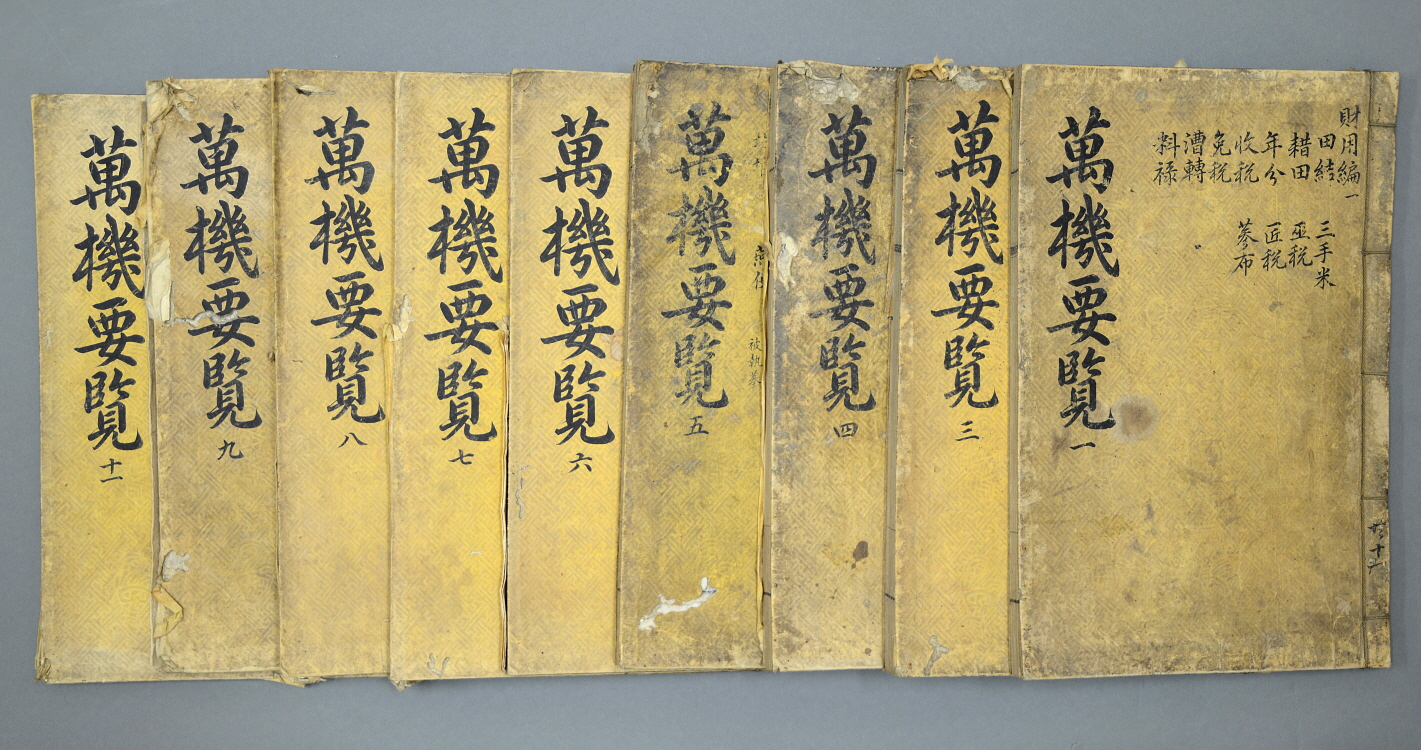 財用編一
田結
耤田
年分
收税
免税
漕轉
料祿
三手米
巫税
匠税
蔘布
萬機要覽 一
萬機要覽 三
萬機要覽 四
被執蔘
萬機要覽 五
萬機要覽 六
萬機要覽 七
萬機要覽 八
萬機要覽 九
萬機要覽 十一